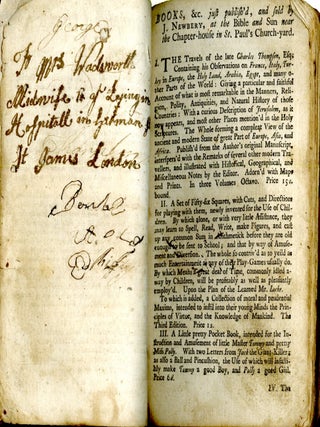 George
To Mrs Wadsworth
Midwife
Hospitall in
St James London
BOOKS, &c. just publish'd, and sold by
J. NEWBERY, at the Bible and Sun near
the Chapter-house in St. Paul's Church-yard.
I. THE Travels of the late Charles Thompson, Esq;
Containing his Observations on France, Italy, Tur-
key in Europe, the Holy Land, Arabia, Egypt, and many o-
ther Parts of the World: Giving a particular and faithful
Account of what is most remarkable in the Manners, Reli-
gion, Polity, Antiquities, and Natural History of those
Countries: With a curious Description of Jerusalem, as it
now appears, and most other Places mention'd in the Holy
Scriptures. The Whole forming a compleat View of the
ancient and modern State of great Part of Europe, Asia, and
Africa. Publish'd from the Author's original Manuscript,
interspers'd with the Remarks of several other modern Tra-
vellers, and illustrated with Historical, Geographical, and
Miscellaneous Notes by the Editor. Adorn'd with Maps
and Prints. In three Volumes Octavo. Price 15s.
bound.
II. A Set of Fifty-six Squares, with Cuts, and Directions
for playing with them, newly invented for the Use of Chil-
dren. By which alone, or with very little Assistance, they
may learn to Spell, Read, Write, make Figures, and cast
up any common Sum in Arithmetick before they are old
enough to be sent to School; and that by way of Amuse-
ment and Diversion. The whole so contriv'd as to yield as
much Entertainment as any of their Play-Games usually do.
By which Means a great deal of Time, commonly idled a-
way by Children, will be profitably as well as pleasantly
employ'd. Upon the Plan of the Learned Mr. Locke.
To which is added, a Collection of moral and prudential
Maxims, intended to instil into their young Minds the Prin-
ciples of Virtue, and the Knowledge of Mankind. The
Third Edition. Price 1s.
III. A Little pretty Pocket Book, intended for the In-
struction and Amusement of little Master Tommy and pretty
Miss Polly. With two Letters from Jack the Giant-Killer;
as also a Ball and Pincushion, the Use of which will infalli-
bly make Tommy a good Boy, and Polly a good Girl.
Price 6d.
IV. The